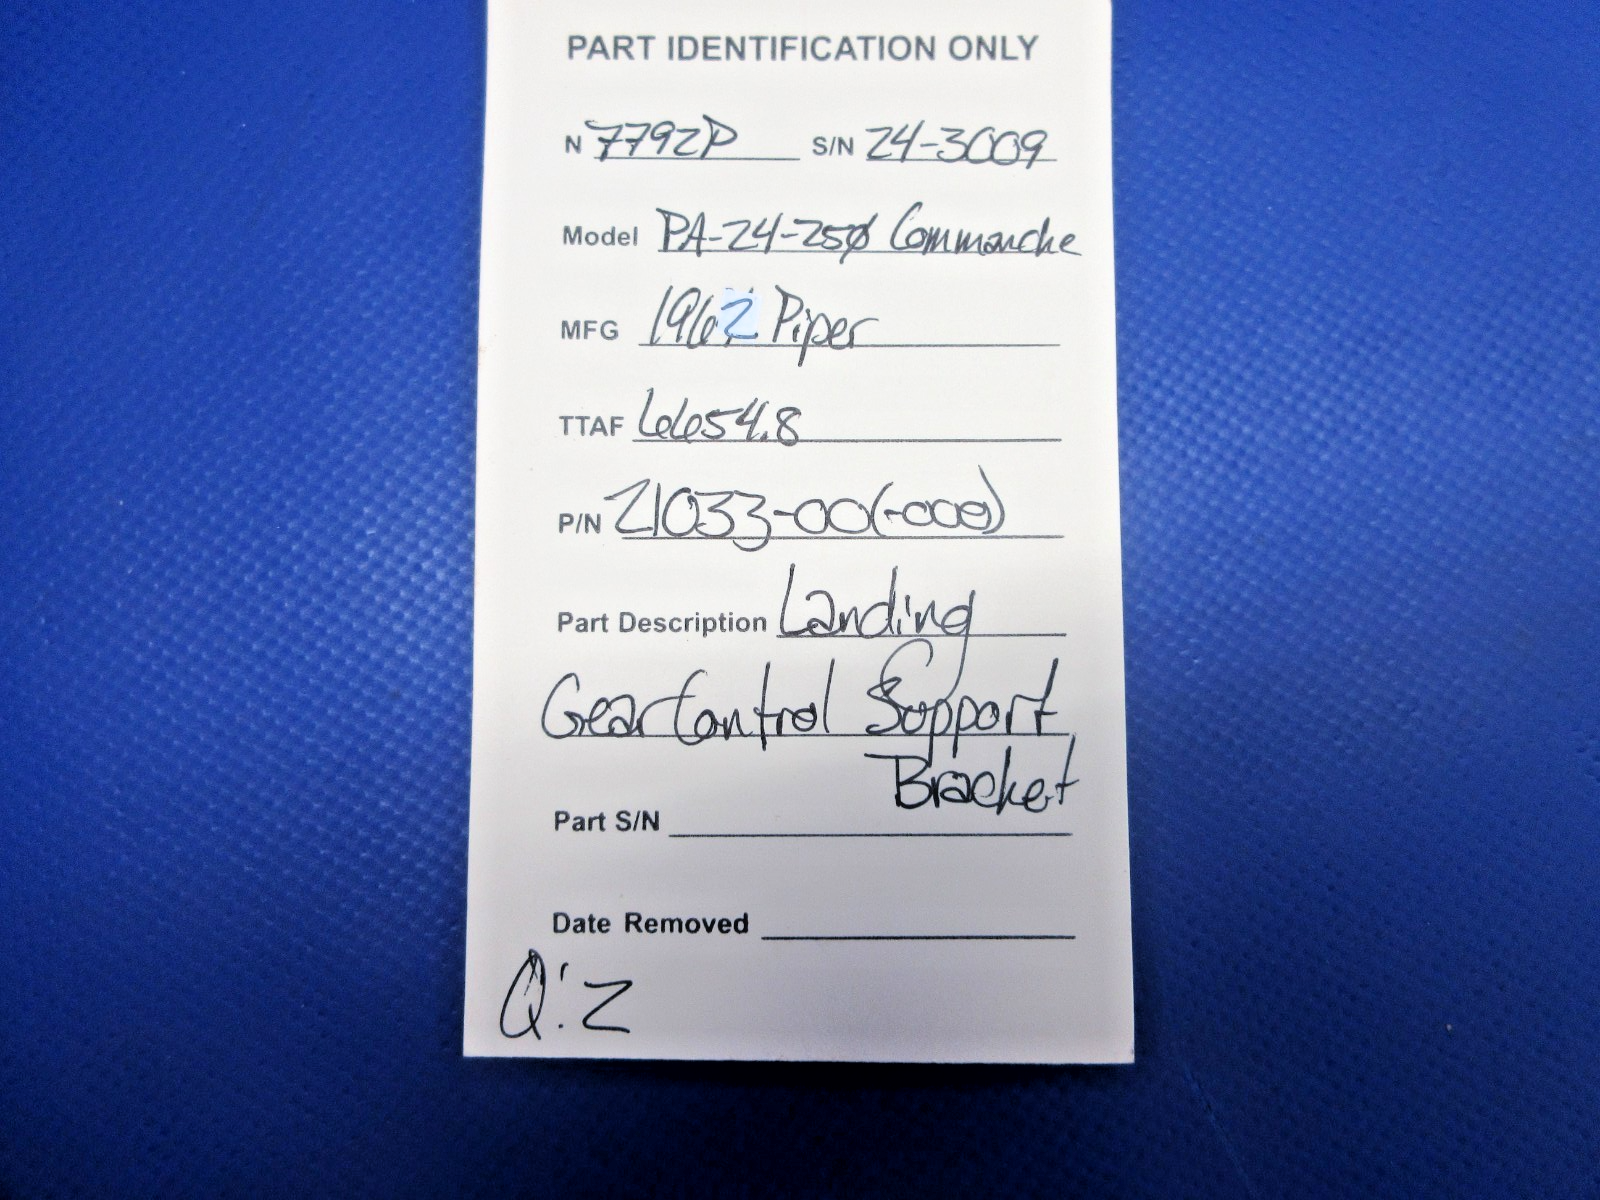 PART IDENTIFICATION ONLY
N 7792P S/N 24-3009
Model PA-24-250 Commanche
MFG 1962 Piper
TTAF 6654.8
P/N 21033-00(-000)
Part Description Landing
Gear Control Support
Bracket
Part S/N
Date Removed
Q: 2